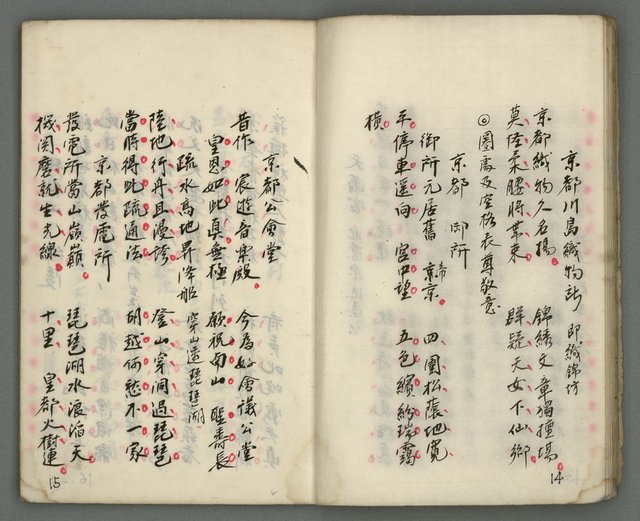 京都川島織物所 即織錦坊
京都織物久名揚 錦綉文章獨擅場
莫怪柔腰將葉束 群疑天女下仙鄉
◎圈處及空格表尊敬意
京都 御所
御所元居舊帝京 四圍松蔭地寬
平停車遙向 宮中望 五色繽紛瑞靄
橫
14
京都公會堂
昔作 宸遊音樂殿 今為好會議公堂
皇恩如此真無極 願祝南山 聖壽長
疏水馬地昇降船 穿山透琵琶湖
陸地行舟且漫誇 登山穿澗過琵琶
當時得此疏通法 胡越何愁不一家
京都發電所
發電所當山嶺巔 琵琶湖水浪滔天
機関磨就生光線 十里 皇都火樹連
15